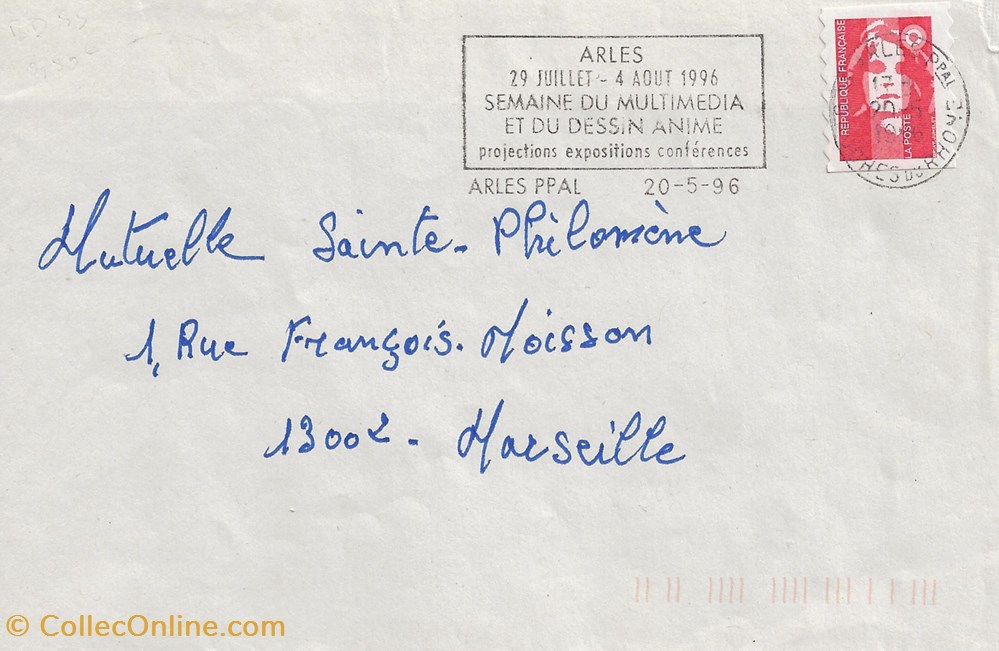 ARLES
29 JUILLET - 4 AOUT 1996
SEMAINE DU MULTIMEDIA
ET DU DESSIN ANIME
projections expositions conférences
ARLES PPAL 20-5-96
REPUBLIQUE FRANÇAISE
LA POSTE
Mutuelle Sainte-Philomène
1, Rue François. Moisson
13002 - Marseille
© CollecOnline.com